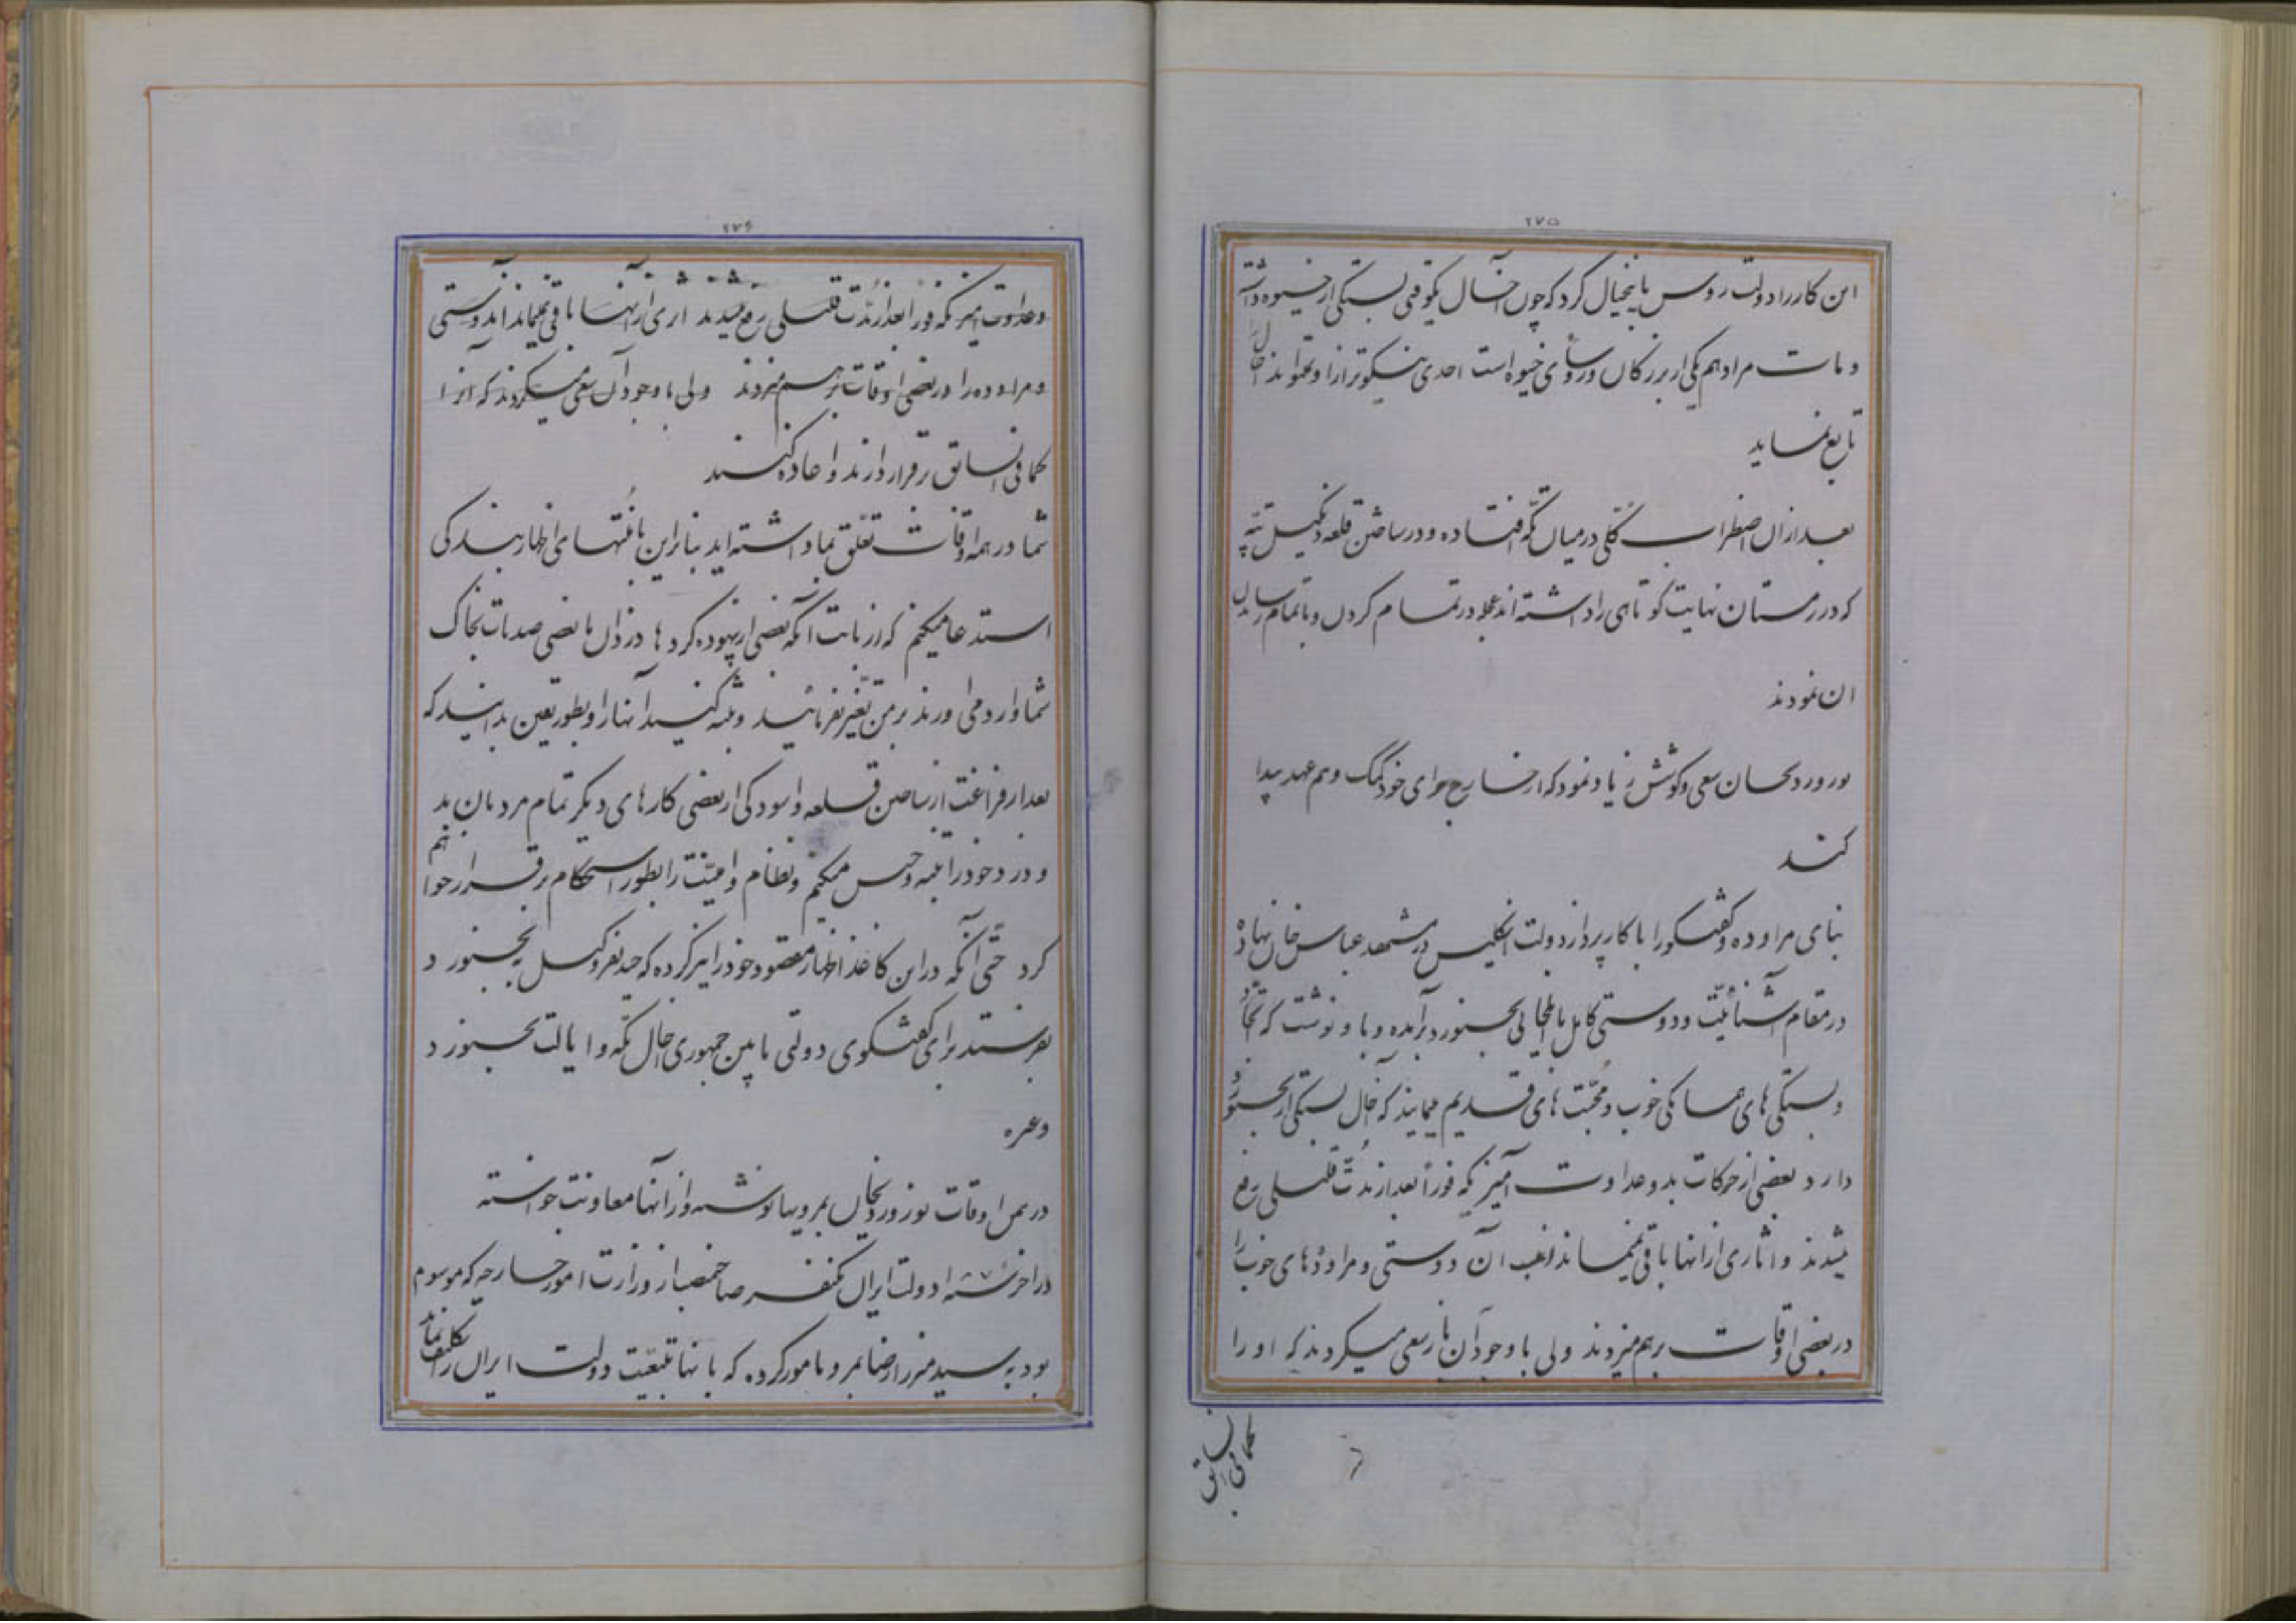 ۲۷۵
این کار را دولت روس باینخیال کرد که چون آخال یکوقتی بستگی از خیوه داشته
و مات مراد هم یکی از بزرگان و رؤسای خیوه است احدی نیکوتر از او نمیتواند آخال
تابع نماید
بعد از ان اضطراب کلی در میان تکه افتاده و در ساختن قلعه دنگیل تپه
که در زمستان نهایت کوتاهی را داشته اند عجله در تمام کردن و باتمام رساندن
ان نمودند
نور ورد یخان سعی و کوشش زیاد نمود که از خارج برای خود کمک و هم عهد پیدا
کند
بنای مراوده و گفتگو را با کارپرداز دولت انگلیس در مشهد عباس خان نهاده
در مقام آشنائیت و دوستی کامل با ایلخانی بجنورد برآمده و باو نوشت که
و بستگی های همسایگی خوب و محبت های قدیم مینمایند که آخال بستگی از بجنورد
دارد بعضی از حرکات بد و عداوت آمیز که فوراً بعد از مدت قلیلی رفع
میشدند و اثاری از انها باقی نمیماند اغلب آن دوستی و مراودهای خوب را
در بعضی اوقات برهم میزدند ولی با وجود آن باز سعی میکردند که او را
کمافی السابق
۲۷۶
و عداوت آمیز که فوراً بعد از مدت قلیلی رفع میشدند اثری از آنها باقی نمیماند دوستی
و مراوده را در بعضی اوقات برهم میزدند ولی با وجود آن سعی میکردند که آنرا
کمافی السابق برقرار دارند و اعاده کنند
شما در همه اوقات تعلق بما داشته اید بنابراین با منتهای اظهار بندگی
استدعا میکنم که از بابت آنکه بعضی از بیهوده گردها دزدان بعضی صدمات بخاک
شما وارد می اورند بر من تغیر نفرمائید و تنبیه کنید آنها را و بطور یقین بدانید که
بعد از فراغت از ساختن قلعه و اسودگی از بعضی کارهای دیگر تمام مردمان بد
و دزد خود را تنبیه و حبس میکنم و نظام و امنیت را بطور استحکام برقرار خواهم
کرد حتی آنکه در این کاغذ اظهار مقصود خود را نیز کرده که چند نفر وکیل بجنورد
بفرستند برای گفتگوی دولتی مابین جمهوری آخال تکه و ایالت بجنورد
وغیره
در همین اوقات نور ورد یخان بمرویها نوشته و از آنها معاونت خواسته
در اخر دولت ایران یکنفر صاحمنصب از وزارت امور خارجه که موسوم
بود به سید میرزا رضا بمرو مامور کرده که بانها تبعیت دولت ایران را تکلیف نماید